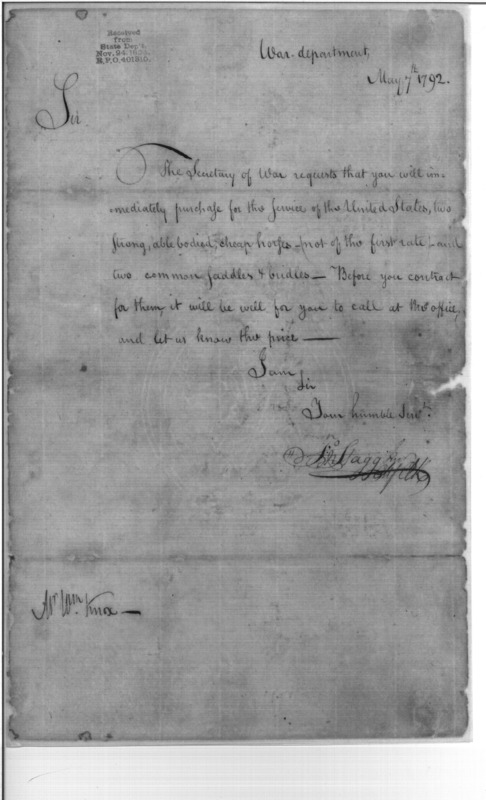 Received
from
State Dep't.
Nov. 24, 1924
R.P.O. 401910.
War-department,
May, 7th 1792.
Sir
The Secretary of War requests that you will im-
-mediately purchase for the Service of the United States, two
strong, able bodied, cheap horses - not of the first rate - and
two common saddles & bridles - Before you contract
for them, it will be well for you to call at the office,
and let us know the price -
I am
Sir
Your humble Serv't.
Jno Stagg Jr
Mr. Wm. Knox -